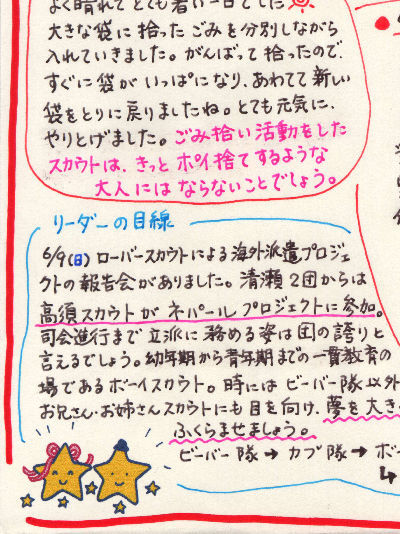 よく晴れて とても暑い一日でした
大きな袋に拾ったごみを分別しながら
入れていきました。がんばって拾ったので、
すぐに袋がいっぱいになり、あわてて新しい
袋をとりに戻りましたね。とても元気に、
やりとげました。ごみ拾い活動をした
スカウトは、きっとポイ捨てするような
大人にはならないことでしょう。
リーダーの目線
6/9(日) ローバースカウトによる海外派遣プロジェ
クトの報告会がありました。清瀬2団からは
高須スカウトがネパールプロジェクトに参加。
司会進行まで立派に務める姿は団の誇りと
言えるでしょう。幼年期から青年期までの一貫教育の
場であるボーイスカウト。時にはビーバー隊以外
お兄さん・お姉さんスカウトにも目を向け、夢を大き
ふくらませましょう。
ビーバー隊→カブ隊→ボー